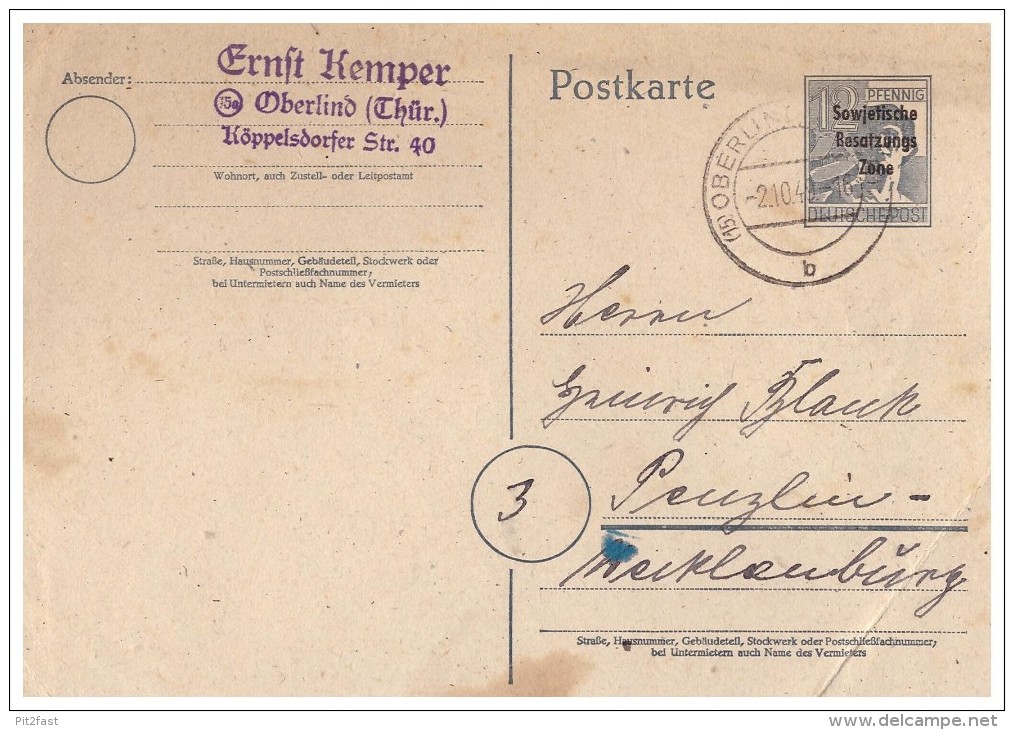 Absender:
Ernst Kemper
15a Oberlind (Thür.)
Köppelsdorfer Str. 40
Wohnort, auch Zustell- oder Leitpostamt
Straße, Hausnummer, Gebäudeteil, Stockwerk oder
Postschließfachnummer;
bei Untermietern auch Name des Vermieters
Postkarte
12 PFENNIG
Sowjetische
Besatzungs
Zone
DEUTSCHE POST
(15) OBERLIND
-2.10.48.-16
b
Herrn
Heinrich Blank
3
Penzlin -
Mecklenburg
Straße, Hausnummer, Gebäudeteil, Stockwerk oder Postschließfachnummer;
bei Untermietern auch Name des Vermieters
Pit2fast
www.delcampe.net